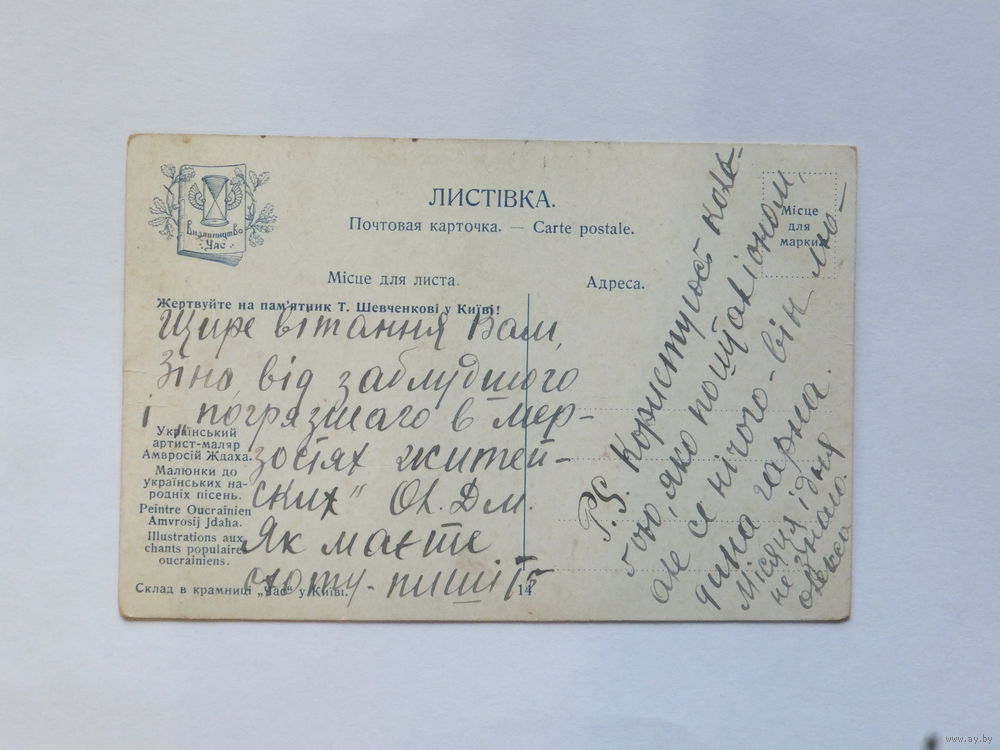 Видавництво
Час
ЛИСТІВКА.
Почтовая карточка. — Carte postale.
Місце для листа.
Адреса.
Місце
для
марки
Жертвуйте на пам'ятник Т. Шевченкові у Київі!
Щире вітання Вам,
Зіно, від заблудшого
і „погрязшаго в мер-
зостях житей-
ских" Ол. Дм.
Як маєте
охоту - пишіть
Український
артист-маляр
Амвросій Ждаха.
Малюнки до
українських на-
родніх пісень.
Peintre Oucrainien
Amvrosij Jdaha.
Illustrations aux
chants populaires
oucrainiens.
Склад в крамниці „Час" у Київі.
14
P.S. Користуюсь
яко пошталіоном,
але се нічого - він лю-
дина гарна.
Місяця і дня
не знаю.
www.ay.by